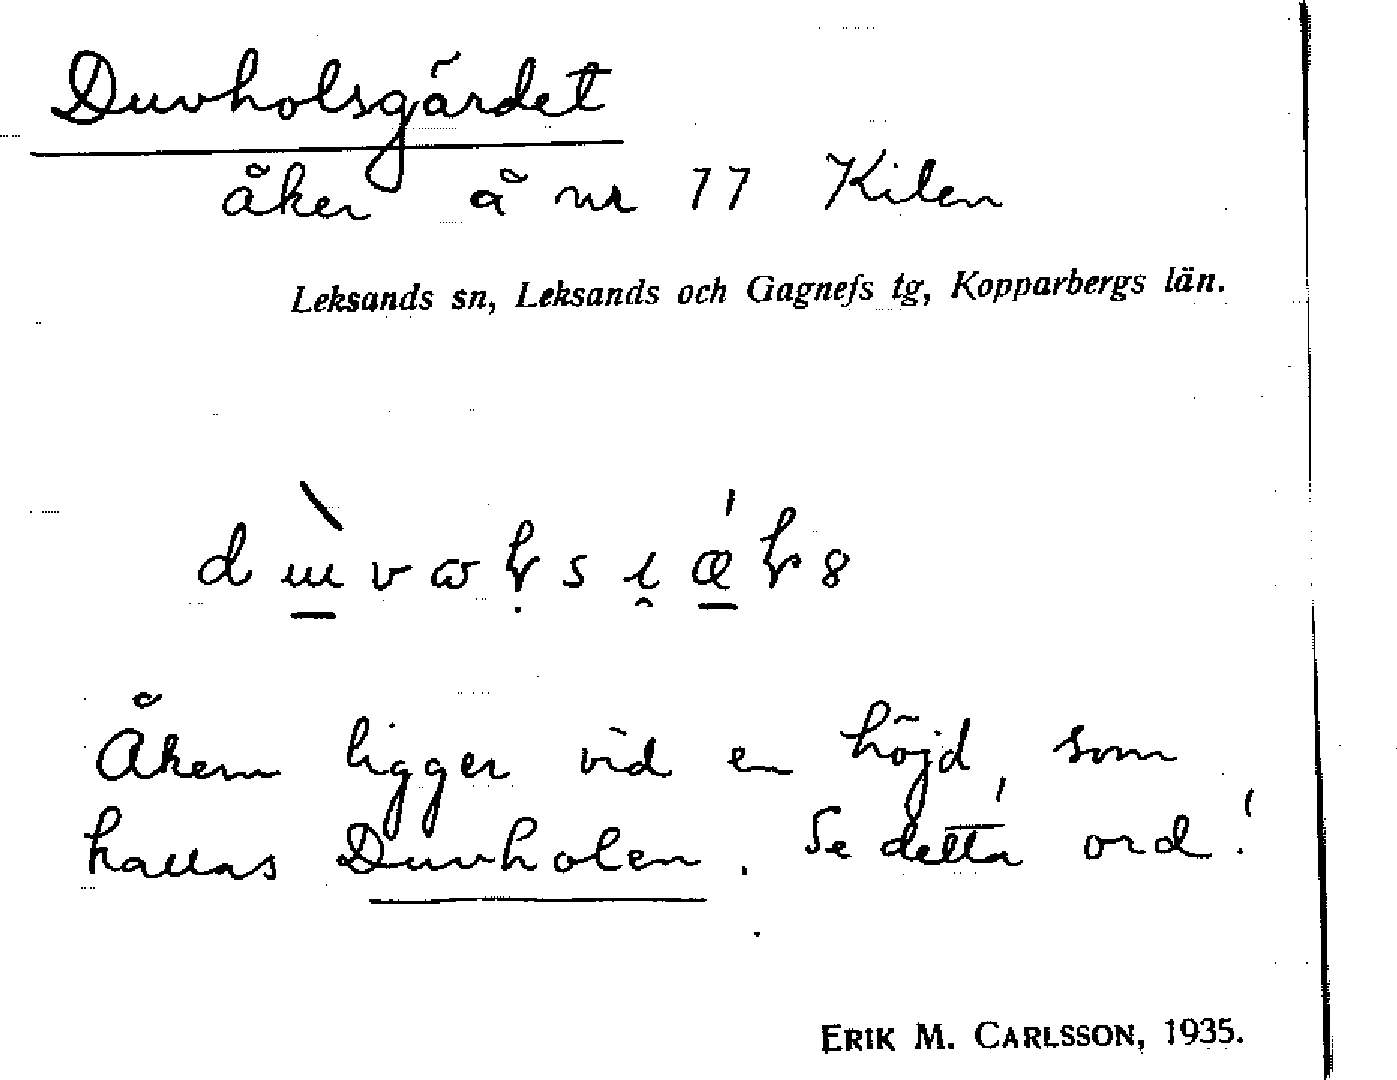 Duvholsgärdet
åker å nr 77 Kilen
Leksands sn, Leksands och Gagnefs tg, Kopparbergs län.
Åkern ligger vid en höjd, som
kallas Duvholen. Se detta ord!
ERIK M. CARLSSON, 1935.